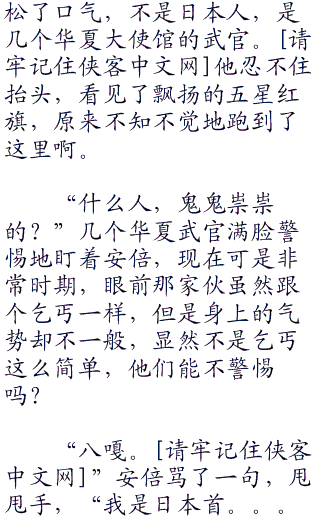 松了口气，不是日本人，是
几个华夏大使馆的武官。[请
牢记住侠客中文网]他忍不住
抬头，看见了飘扬的五星红
旗，原来不知不觉地跑到了
这里啊。
“什么人，鬼鬼祟祟
的？”几个华夏武官满脸警
惕地盯着安倍，现在可是非
常时期，眼前那家伙虽然跟
个乞丐一样，但是身上的气
势却不一般，显然不是乞丐
这么简单，他们能不警惕
吗？
“八嘎。[请牢记住侠客
中文网]”安倍骂了一句，甩
甩手，“我是日本首。。。